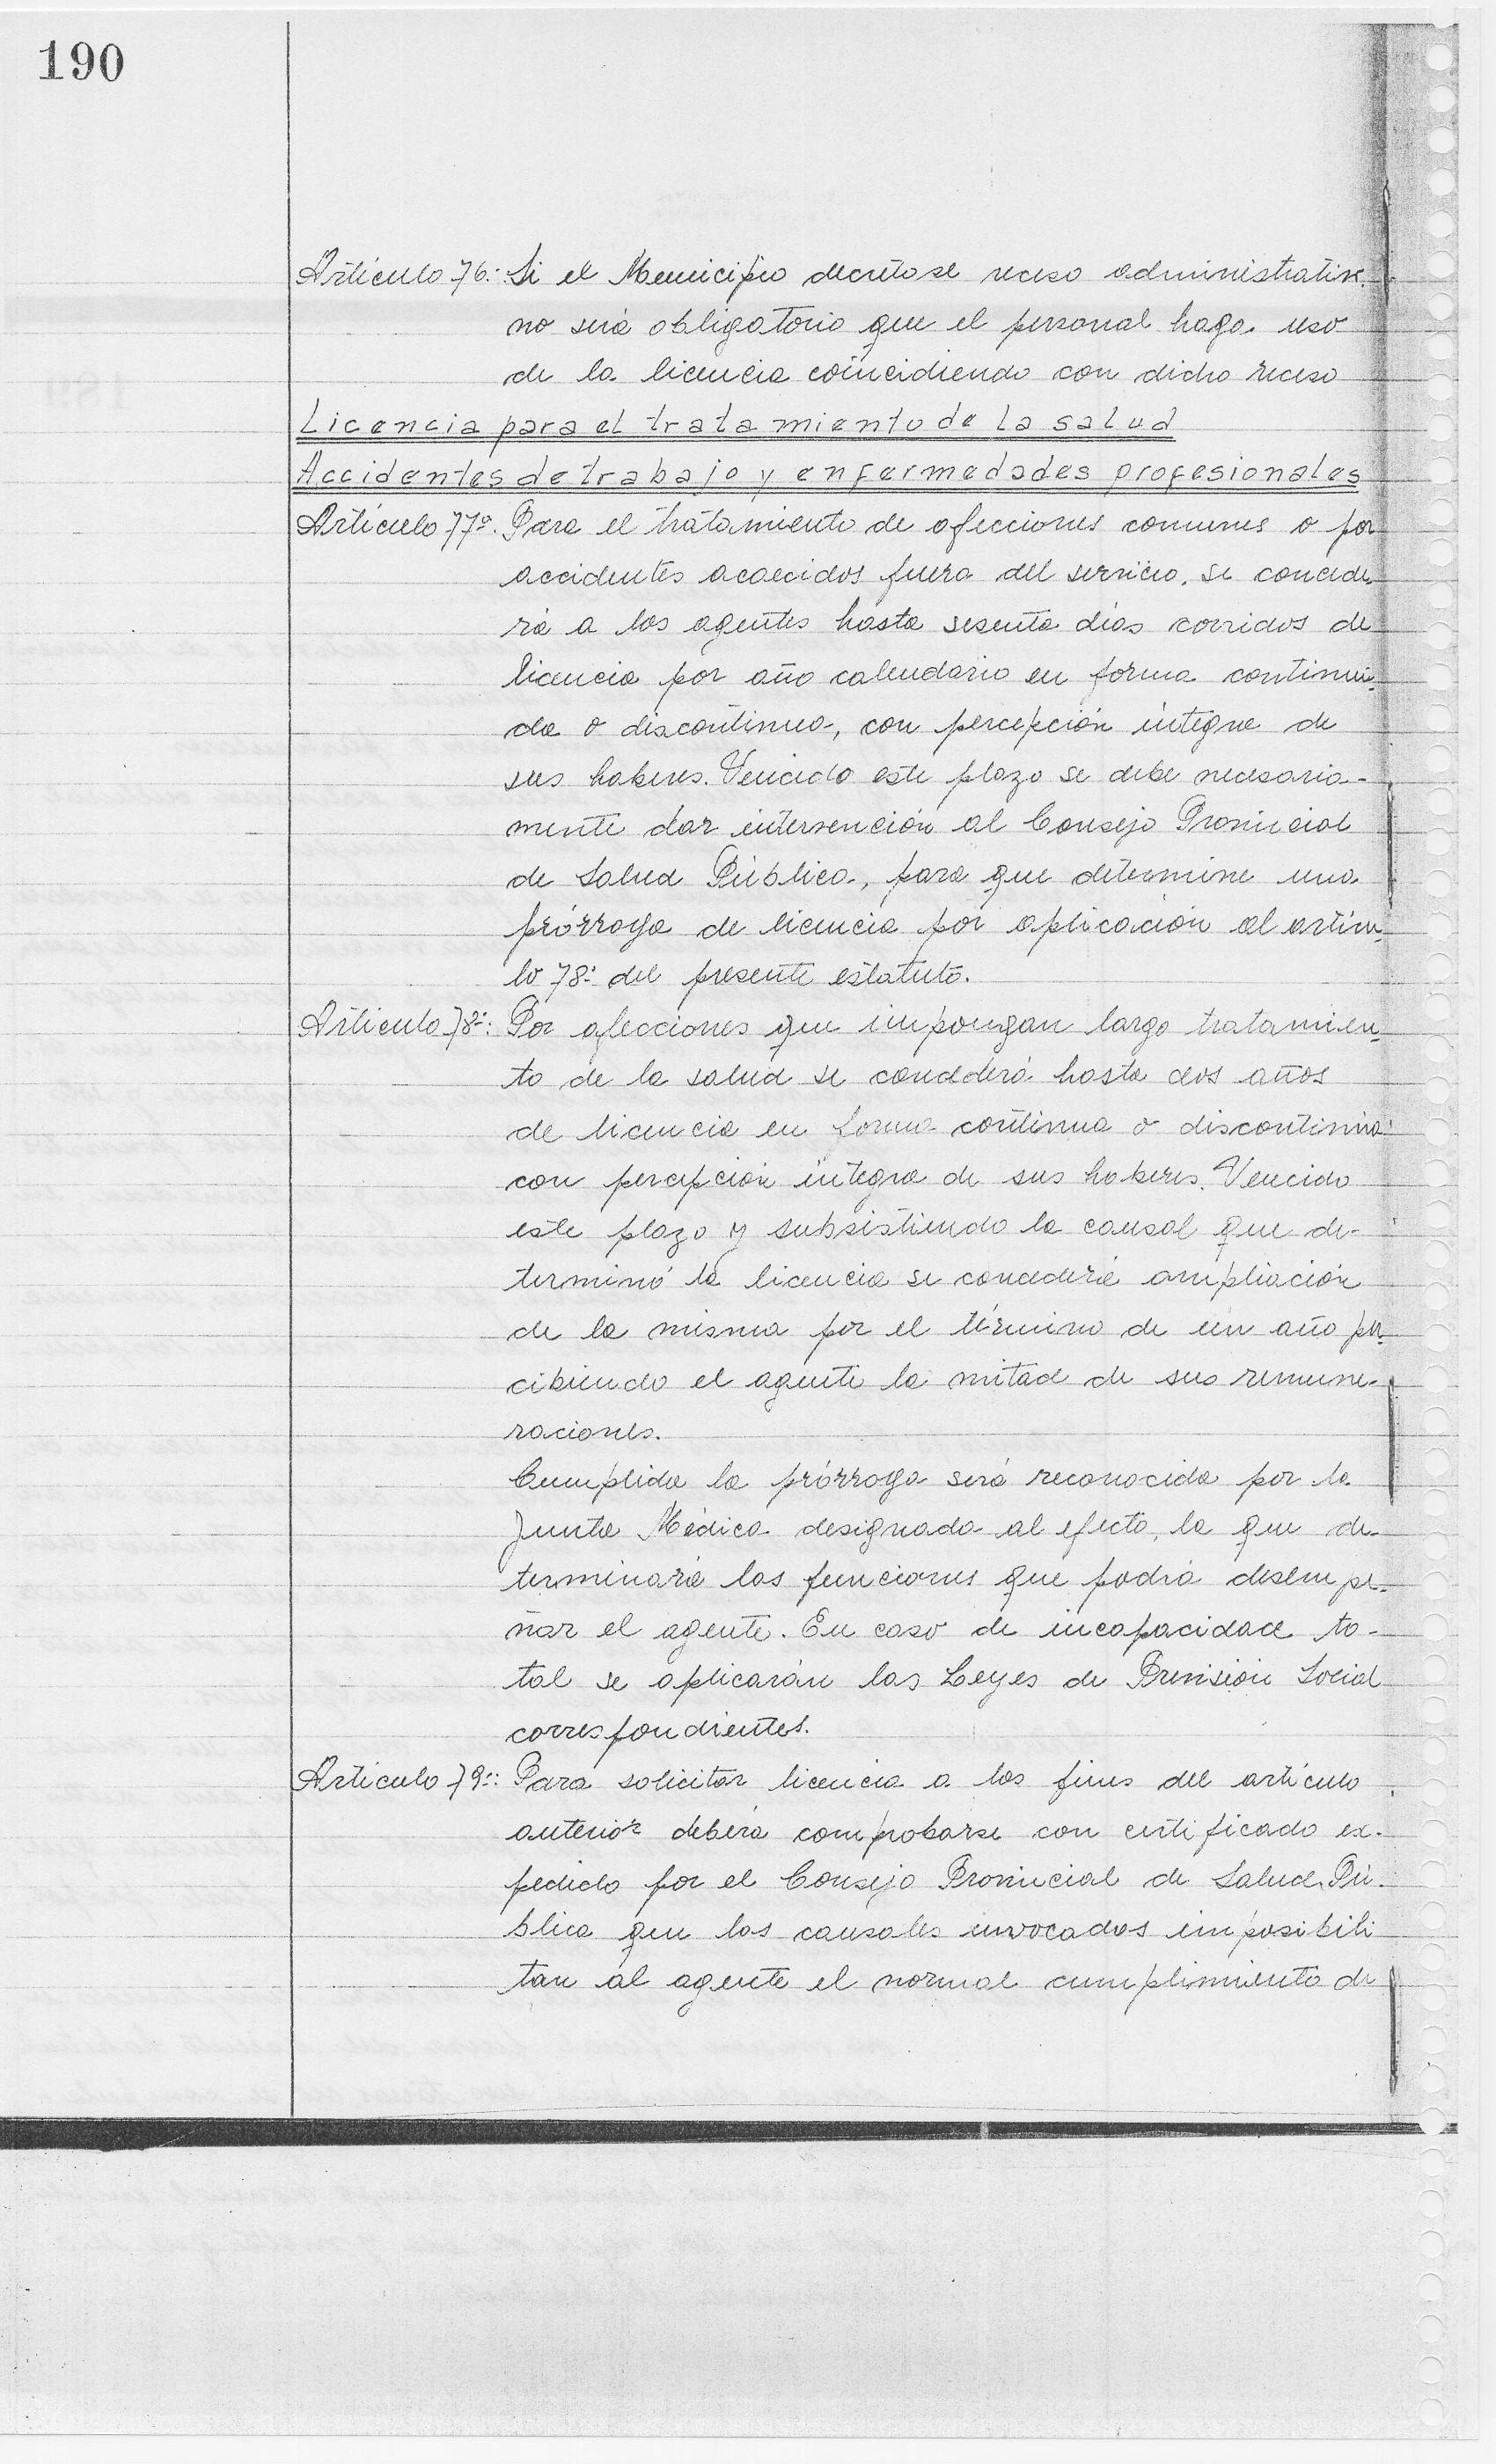 190
Artículo 76: Si el Municipio decretose receso administrativo
no será obligatorio que el personal haga uso
de la licencia coincidiendo con dicho receso
Licencia para el tratamiento de la salud
Accidentes de trabajo y enfermedades profesionales
Artículo 77º. Para el tratamiento de afecciones comunes o por
accidentes acaecidos fuera del servicio, se concede-
rá a los agentes hasta sesenta días corridos de
licencia por año calendario en forma continui-
da o discontinua, con percepción íntegra de
sus haberes. Vencido este plazo se debe necesaria-
mente dar intervención al Consejo Provincial
de Salud Pública, para que determine una
prórroga de licencia por aplicación al artícu-
lo 78: del presente estatuto.
Artículo 78: Por afecciones que impongan largo tratamien-
to de la salud se concederá hasta dos años
de licencia en forma continua o discontinua
con percepción íntegra de sus haberes. Vencido
este plazo y subsistiendo la causal que de-
terminó la licencia se concederá ampliación
de la misma por el término de un año per-
cibiendo el agente la mitad de sus remune-
raciones.
Cumplida la prórroga será reconocida por la
Junta Médica designada al efecto, la que de-
terminará las funciones que podrá desempe-
ñar el agente. En caso de incapacidad to-
tal se aplicarán las Leyes de Previsión Social
correspondientes.
Artículo 79: Para solicitar licencia a los fines del artículo
anterior deberá comprobarse con certificado ex-
pedido por el Consejo Provincial de Salud Pú-
blica que las causales invocados imposibili
tan al agente el normal cumplimiento de